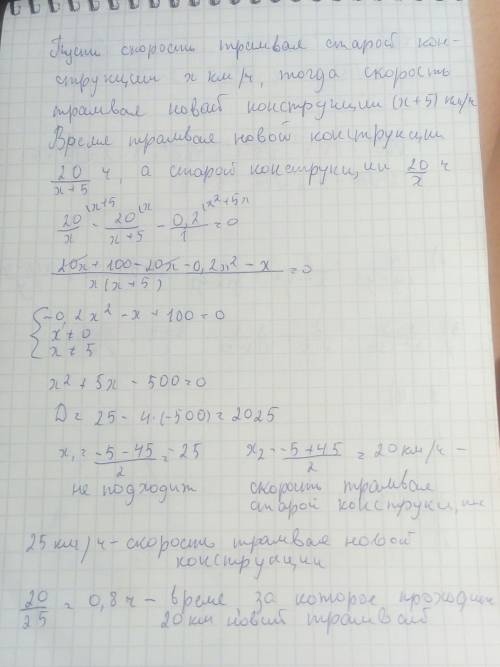 Пусть скорость трамвая старой кон-
струкции x км/ч, тогда скорость
трамвая новой конструкции (x+5) км/ч
Время трамвая новой конструкции
20/(x+5) ч, а старой конструкции 20/x ч
20/x \x+5 - 20/(x+5) \x - 0,2/1 \x²+5x = 0
(20x+100-20x-0,2x²-x)/(x(x+5)) = 0
{ -0,2x²-x+100=0
x≠0
x≠5
x²+5x-500=0
D= 25-4·(-500)=2025
x₁= (-5-45)/2 = -25 x₂= (-5+45)/2 = 20км/ч -
не подходит скорость трамвая
старой конструкции
25 км/ч-скорость трамвая новой
конструкции
20/25 = 0,8 ч - время за которое проходит
20 км новый трамвай